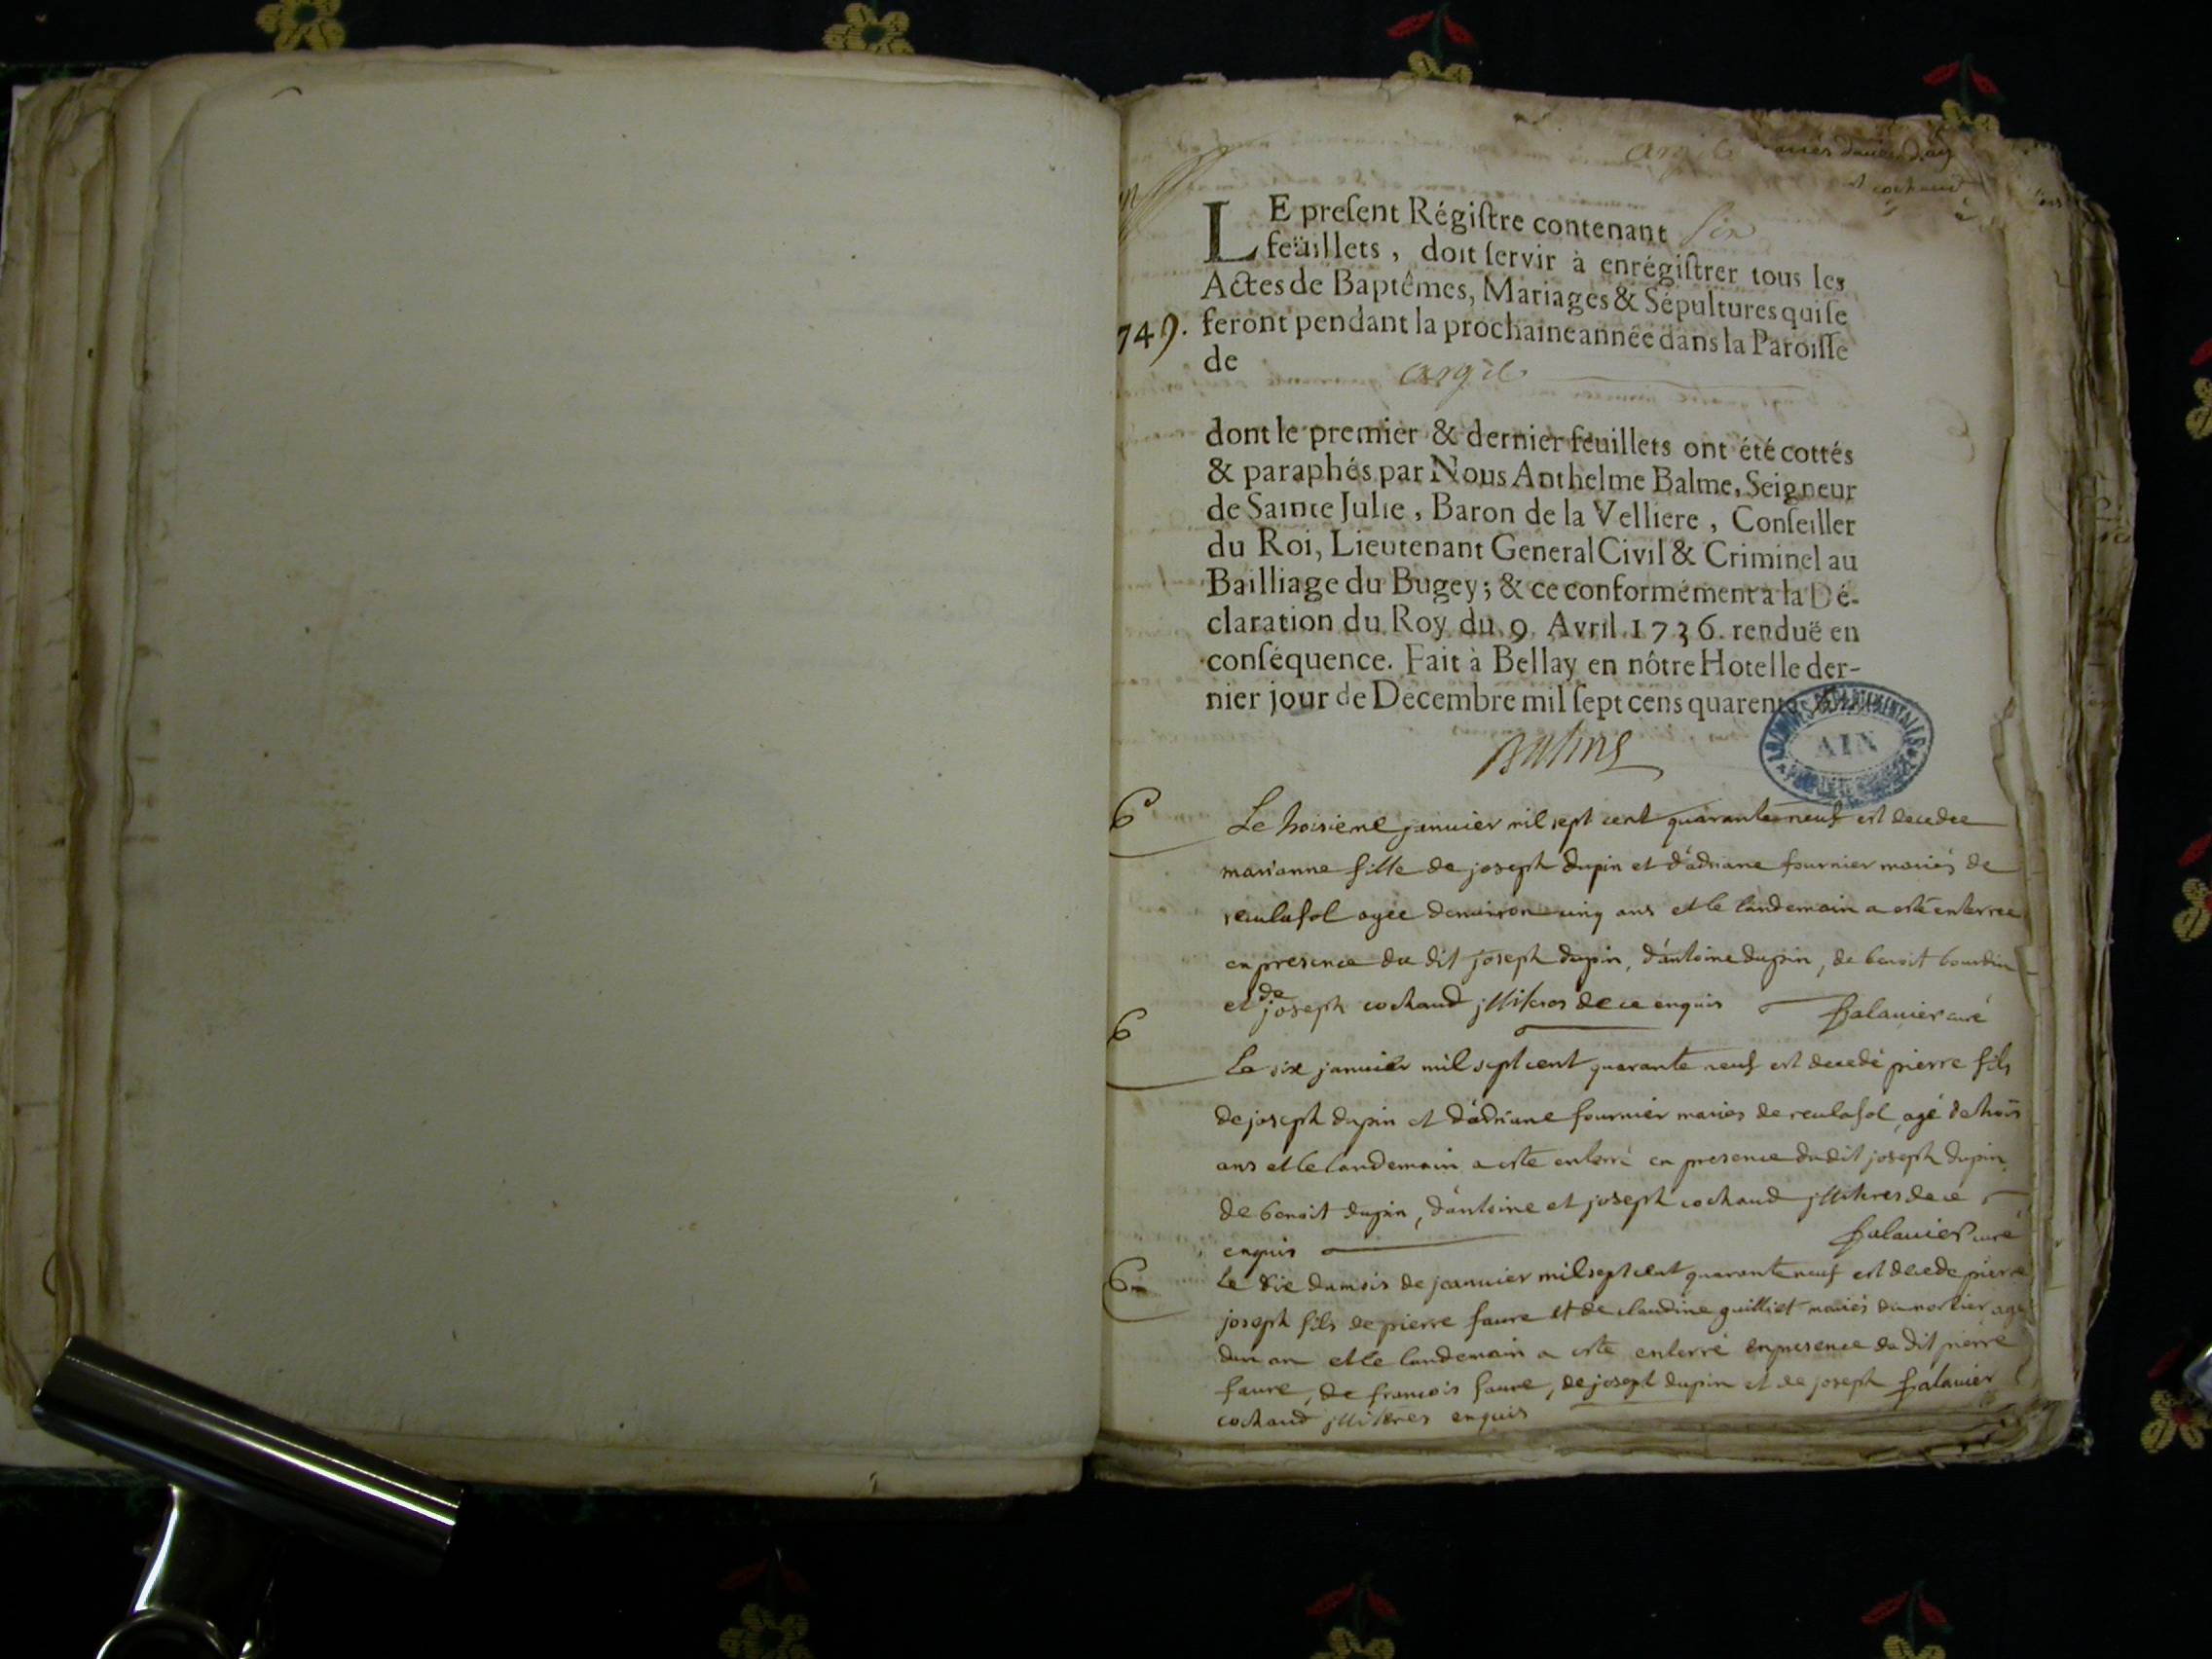 argil
et cochaud
LE preſent Régiſtre contenant six
feüillets, doit ſervir à enrégiſtrer tous les
Actes de Baptêmes, Mariages & Sépultures qui ſe
749. feront pendant la prochaine année dans la Paroiſſe
de argil
dont le premier & dernier feuillets ont été cottés
& paraphés par Nous Anthelme Balme, Seigneur
de Sainte Julie, Baron de la Velliere, Conſeiller
du Roi, Lieutenant General Civil & Criminel au
Bailliage du Bugey; & ce conformément à la Dé-
claration du Roy du 9. Avril 1736. renduë en
conſéquence. Fait à Bellay en nôtre Hotel le der-
nier jour de Decembre mil ſept cens quarente
ARCHIVES DÉPARTEMENTALES
AIN
Balme
6 Le troisieme janvier mil sept cent quarante neuf est decedee
marianne fille de joseph dupin et d'adriane fournier mariés de
reculafol agée denviron cinq ans et le landemain a esté enterree
en presence du dit joseph dupin, d'antoine dupin, de benoit bourdin
et de joseph cochaud illiteres de ce enquis falavier curé
6 Le six janvier mil sept cent quarante neuf est decedé pierre fils
de joseph dupin et d'adriane fournier mariés de reculafol, agé de trois
ans et le landemain a esté enterré en presence du dit joseph dupin,
de benoit dupin, d'antoine et joseph cochaud illiteres de ce
enquis falavier curé
6 le dix du mois de jeanvier mil sept cent quarante neuf est decedé pierre
joseph fils de pierre faure et de claudine guilliet mariés du mortier agé
dun an et le landemain a esté enterré en presence du dit pierre
faure, de francois faure, de joseph dupin et de joseph falavier
cochaud illiteres enquis